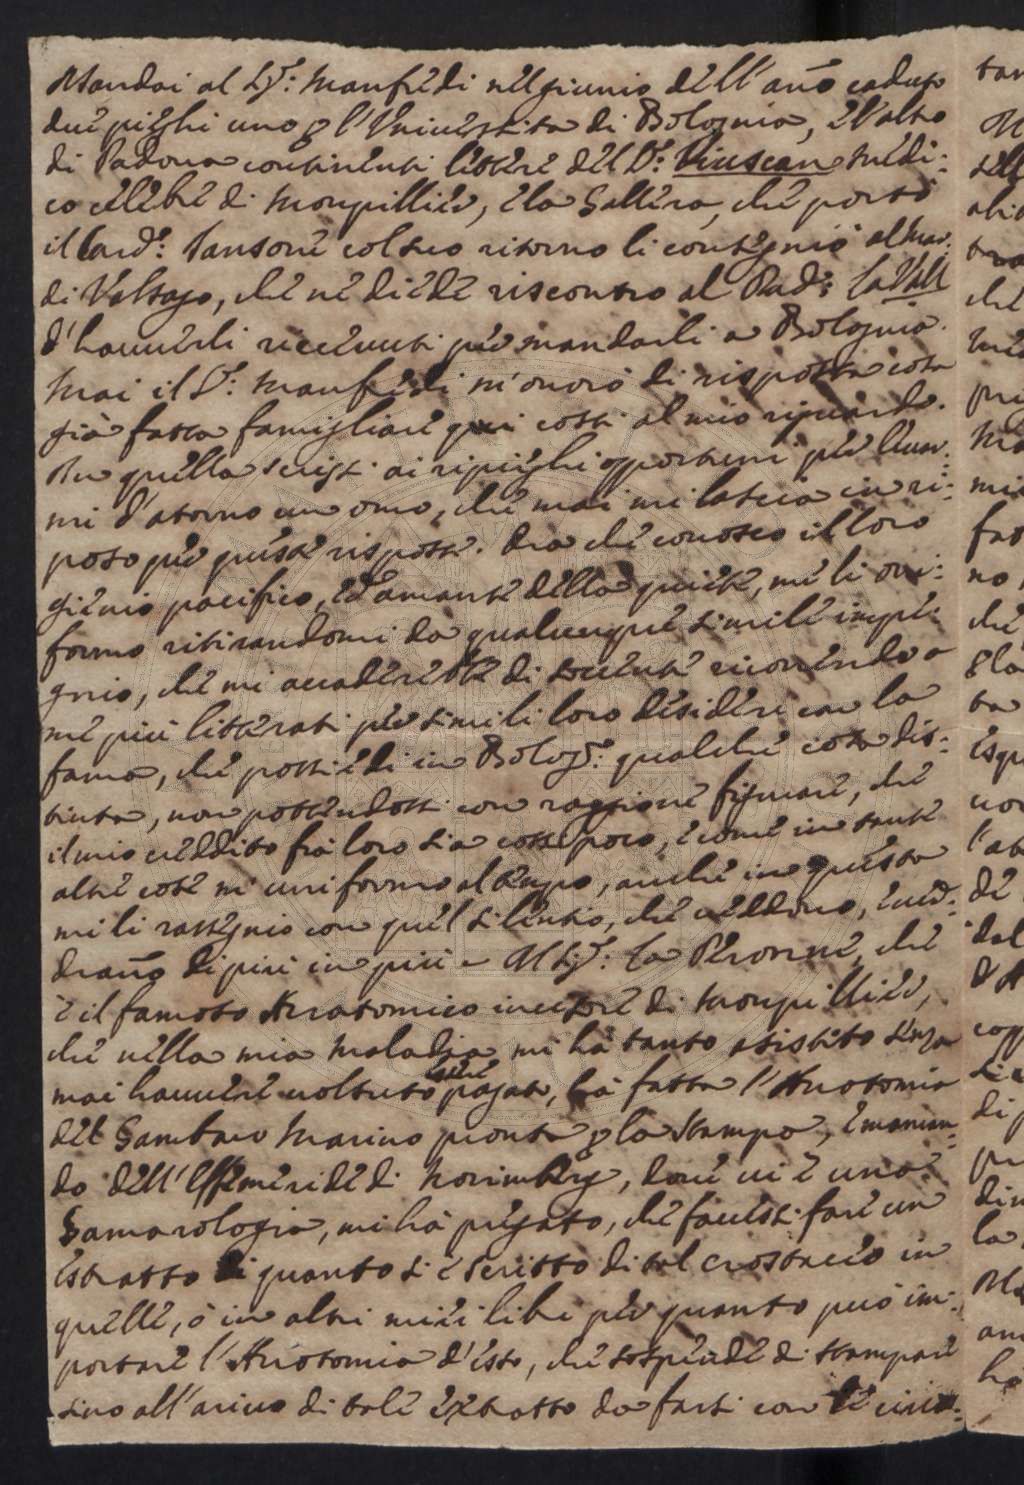 Mandai al Sig.r Manfredi nel giunio dell'año caduto
due pieghi uno p l'Università di Bologna, e l'altro
di Padova continenti lettere del D.r Vieussan medi:
co celebre di Monpillier, e la Gallera, che portò
il Card.e Jansone col suo ritorno li contegniò al Mar.
di Valsago, che ne diede riscontro al Pad.e La Vall
d'hauuerli riceuuti per mandarli a Bologna.
Mai il S.r Manfredi m'onorò di risposta cosa
già fatta famigliare qui costì al mio riguardo.
In quella scrissi ai ripieghi opportuni per leuar:
mi d'atorno un omo, che mai mi lascia in ri:
poso per queste risposte. Ora che conosco il loro
gienio pacifico, ed amante della quiete, me li oni:
formo ritirandomi da qualunque simile impe:
gnio, che mi accaderebbe di souente ricorrendo a
me più litterati per simili loro desideri con la
fama, che possiedi in Bolog.a qualche cosa dis:
tinta, non potendosi con raggione figurare, che
il mio creddito frà loro sia così poco, e come in tante
altre cose mi uniformo al tempo, anche in questa
mi li rassegnio con quel silentio, che creddono, e ued:
draño di più in più. Al Sig.r La Peronie, che
è il famoso Anatomico incisore di Monpillier,
che nella mia maladia mi hà tanto asistito senza
mai hauuere uolsuto esere pagato, hà fatta l'Anotomia
del Gambaro Marino pronta p la stampa, e mancan:
do dell'Effemeride di Norimberg, doue ui è una
Gamarologia, mi hà pregato, che facessi fare un
estratto di quanto si è scritto di tal crostaceo in
quelle, ò in altri miei libri per quanto può im:
portare l'Anotomia d'esso, che sospende di stampare
sino all'ariuo di tale extratto da farsi con le